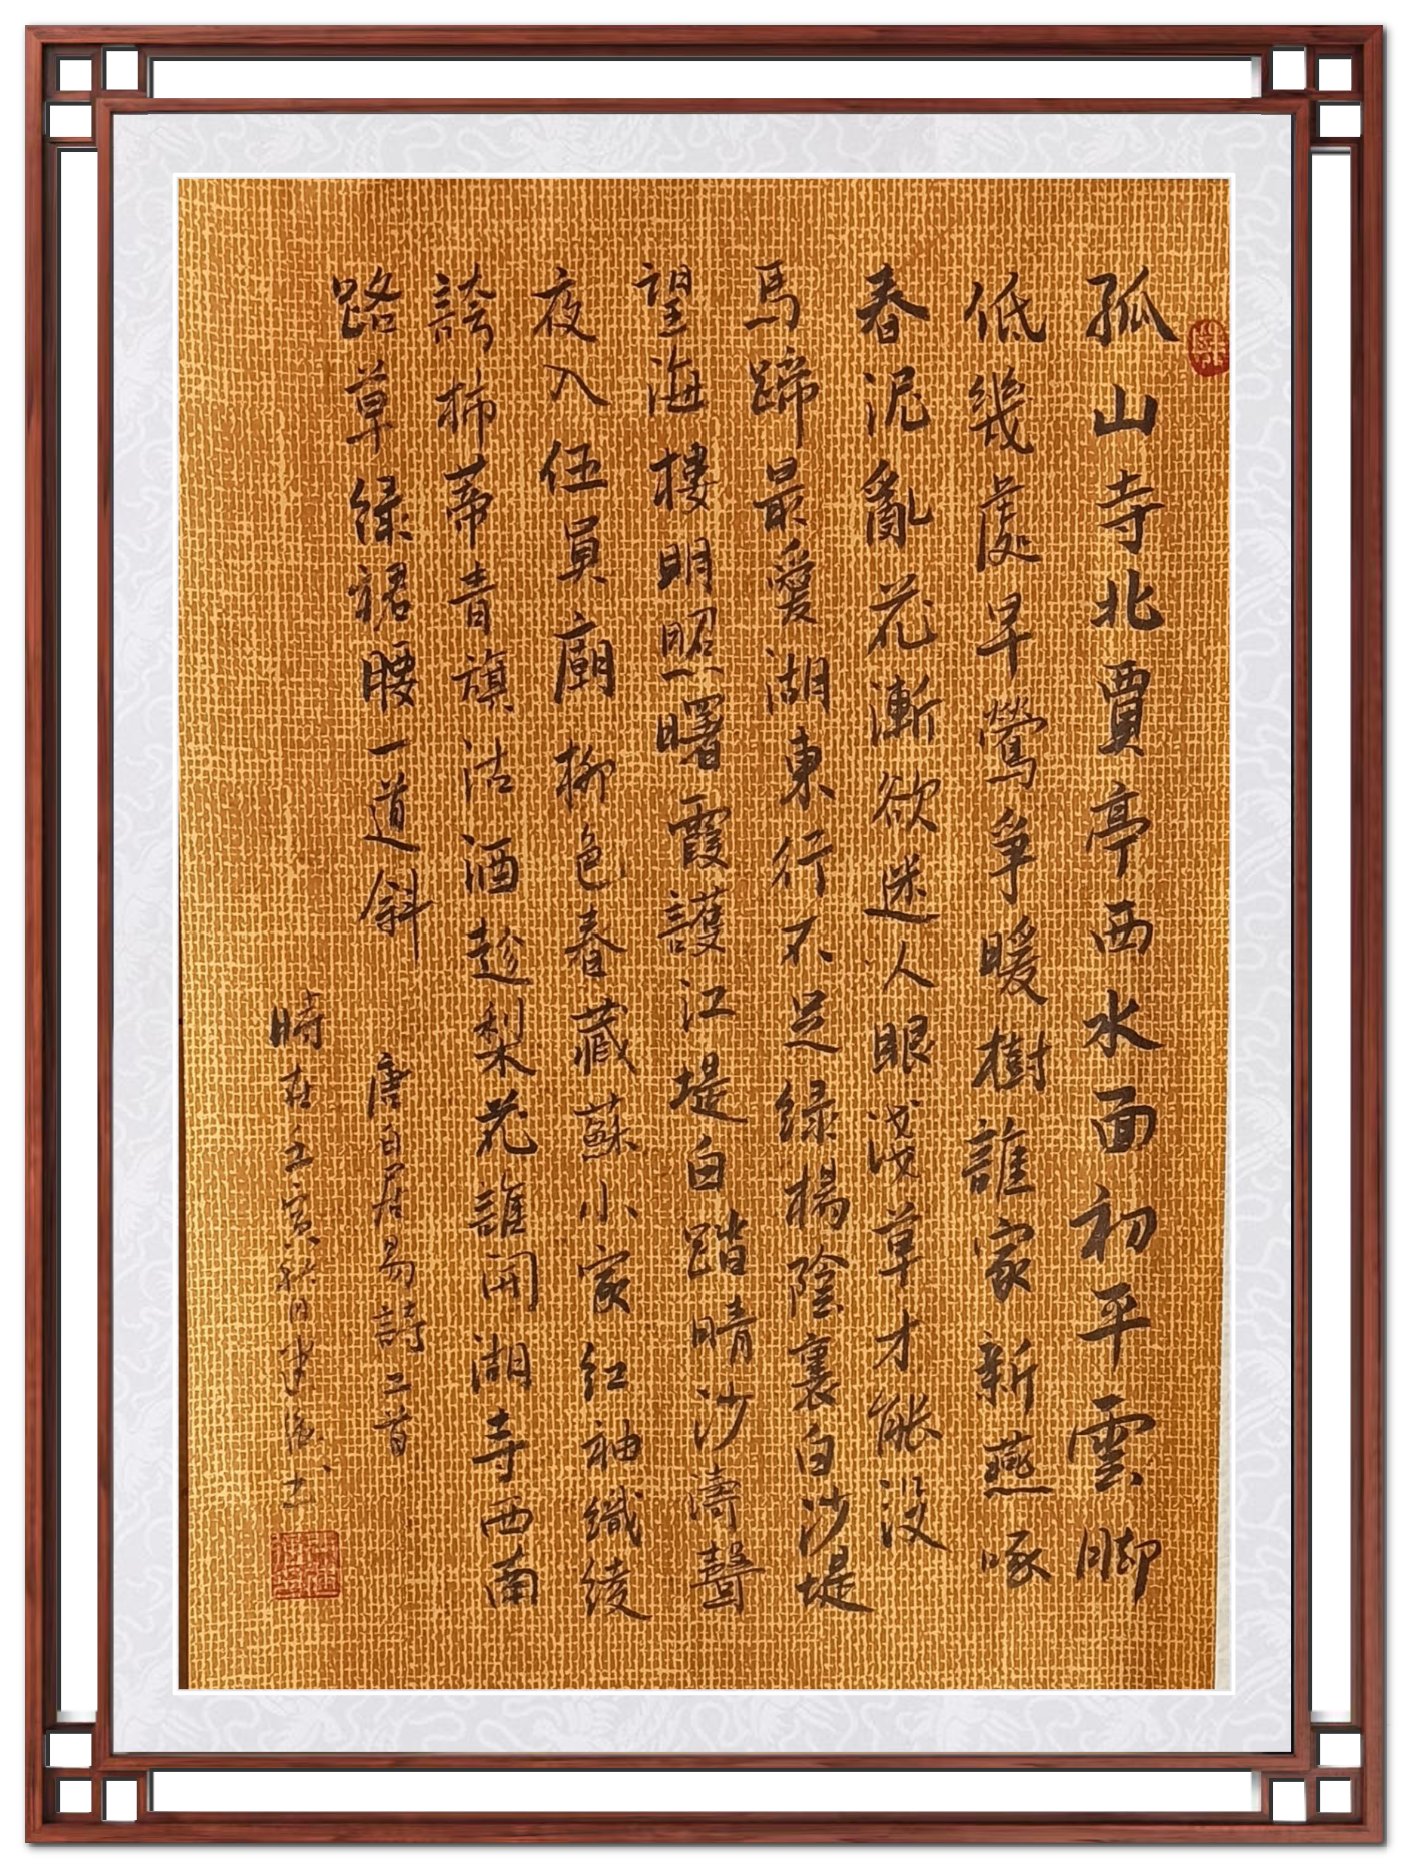 孤山寺北賈亭西水面初平雲脚
低幾處早鶯爭暖樹誰家新燕啄
春泥亂花漸欲迷人眼淺草才能没
馬蹄最愛湖東行不足緑楊陰裏白沙堤
望海樓明照曙霞護江堤白踏晴沙濤聲
夜入伍員廟柳色春藏蘇小家紅袖織綾
誇柿蒂青旗沽酒趁梨花誰開湖寺西南
路草緑裙腰一道斜
唐白居易詩二首
時在壬寅秋月建海書